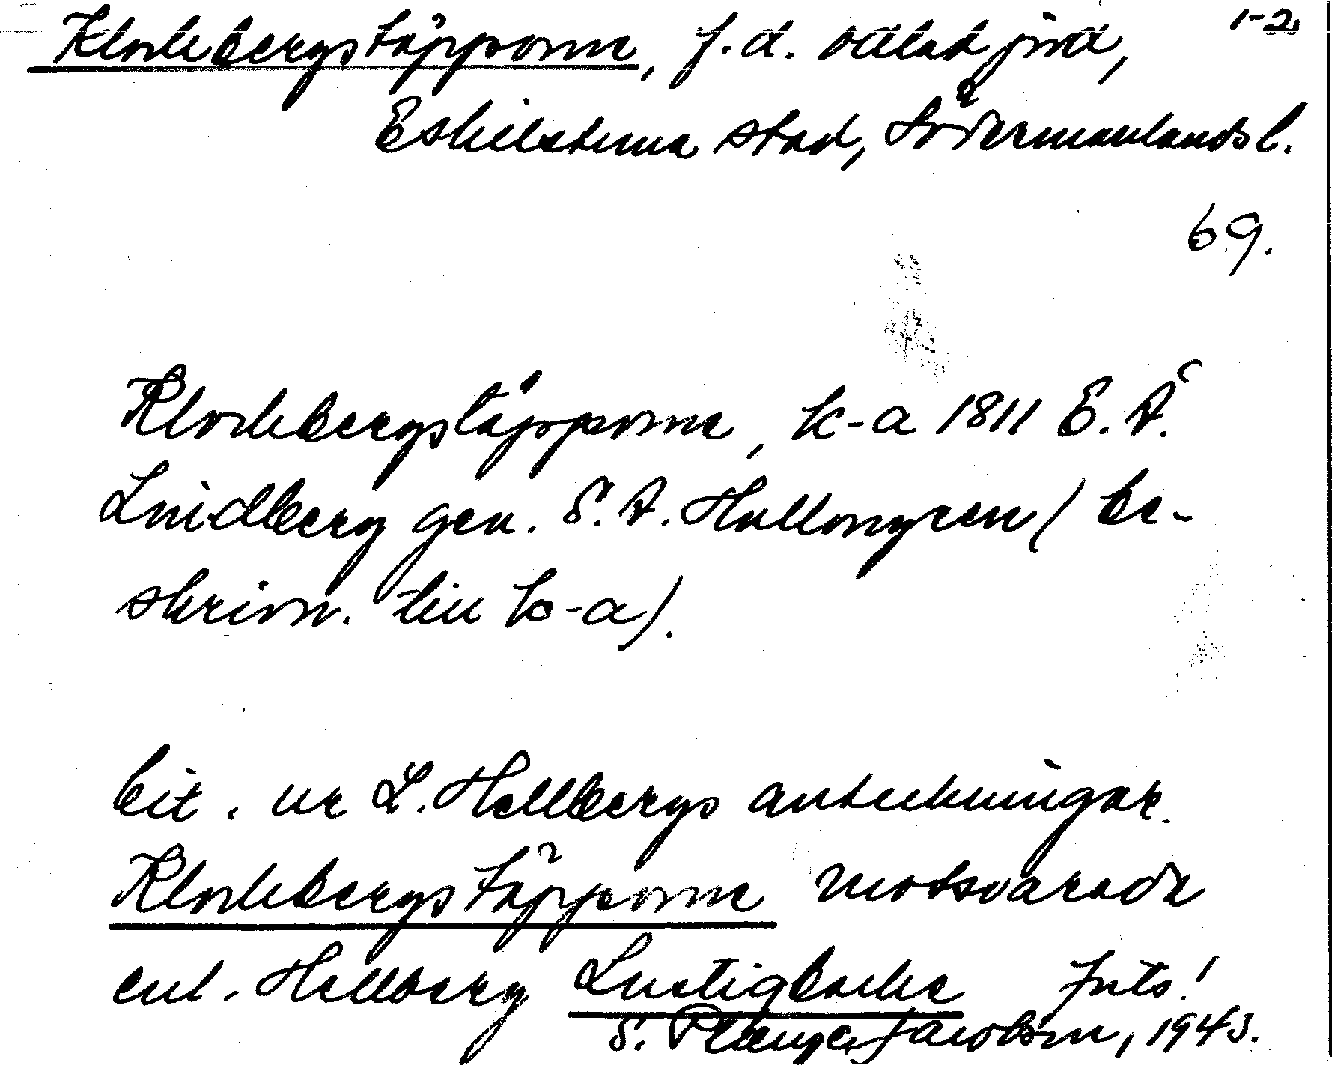 1-2
Klockbergstäpporna, f.d. odlad jord,
Eskilstuna stad, Södermanlands l.
69.
Klockbergstäpporna, k-a 1811 E. A.
Lindberg gen. S. A. Hallongren (be-
skrivn. till k-a).
Cit. ur L. Hellbergs anteckningar.
Klockbergstäpporna motsvarade
enl. Hellberg Lustigbacke forts!
S. Jacobson, 1943.